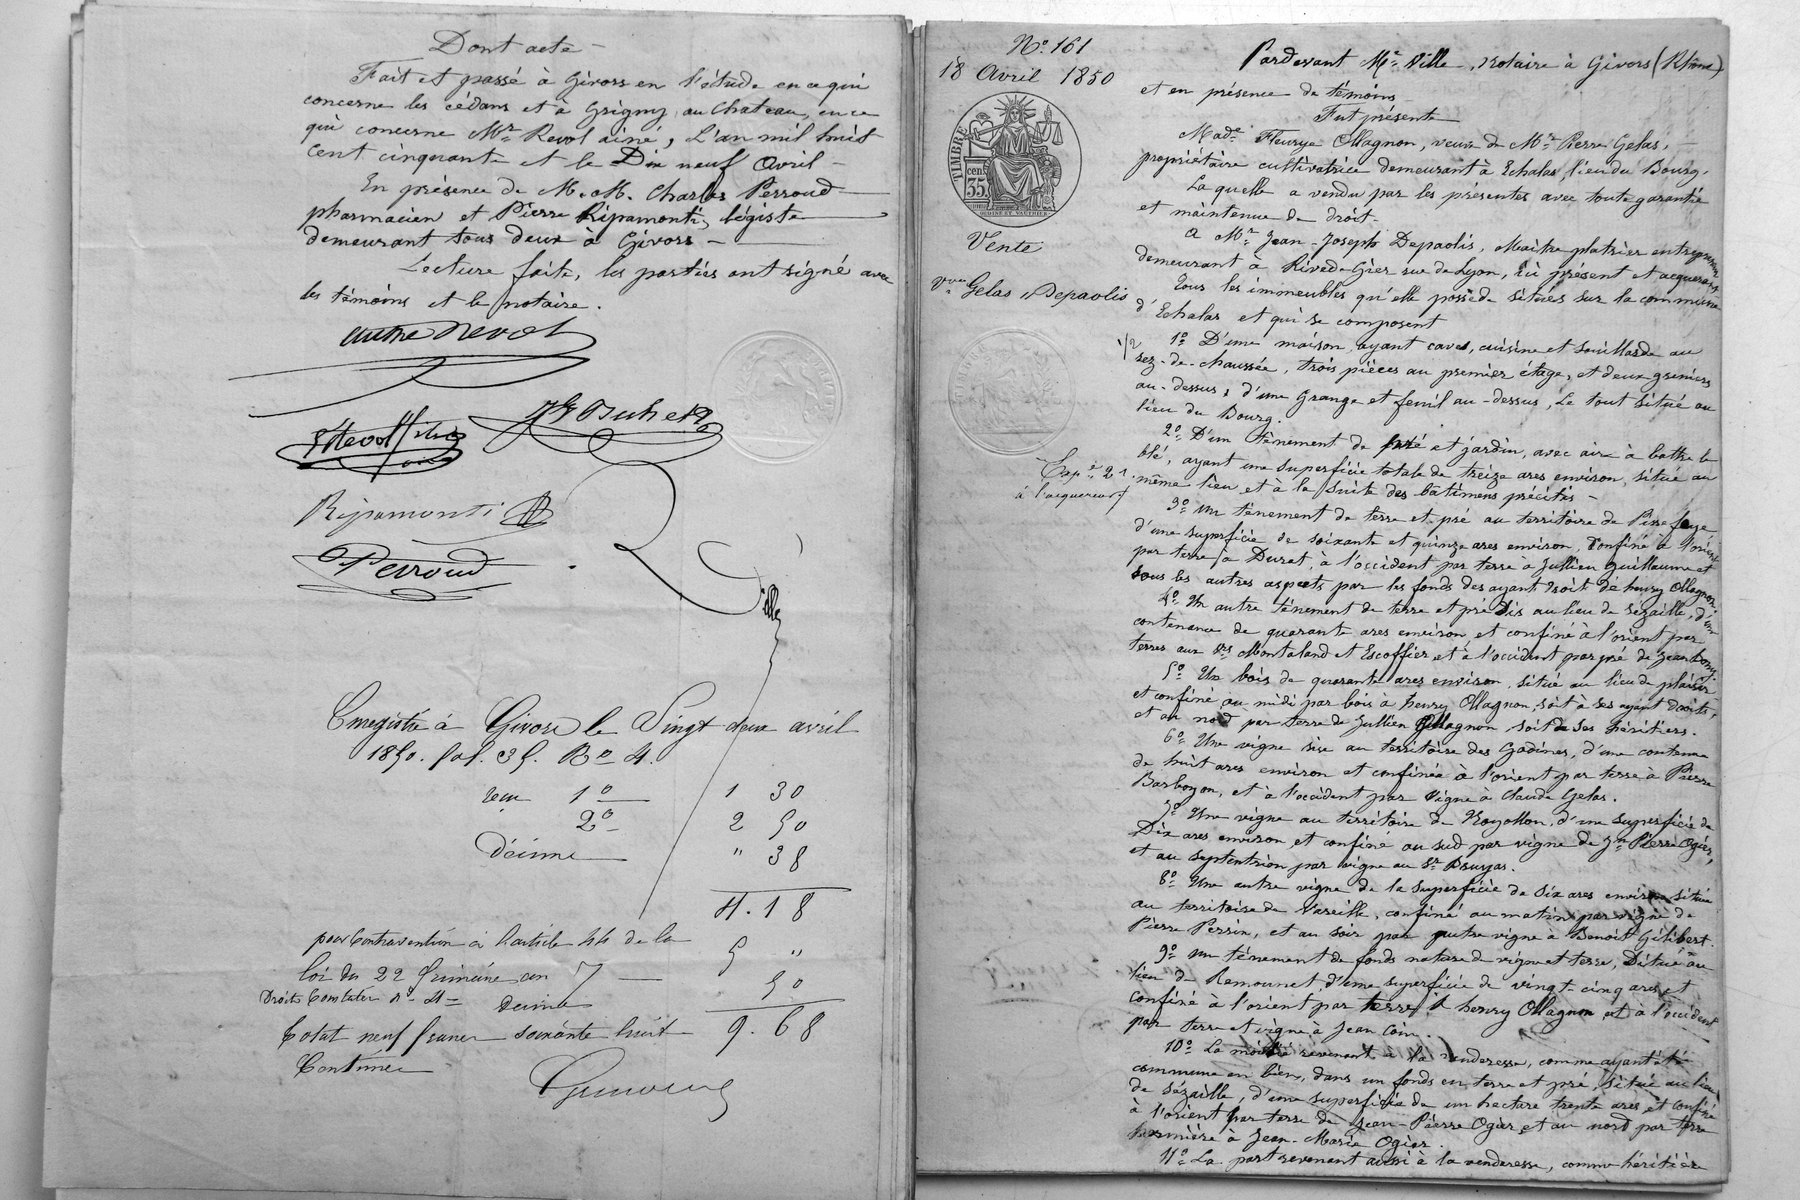 Dont acte –
Fait et passé à Givors en l'étude en ce qui
concerne les cédans et à Grigny, au Chateau, en ce
qui concerne Mr. Revol ainé, L'an mil huit
cent cinquante et le Dix neuf Avril –
En présence de M.M. Charles Perroud
pharmacien et Pierre Ripamonti, légiste
demeurant tous deux à Givors –
Lecture faite, les parties ont signé avec
les témoins et le notaire.
Revol
Revol fils
Ripamonti
Perroud
Ville
Enregistré à Givors le Vingt deux avril
1850. fol. 35. Ro 4.
reçu 1o 1 30
2o 2 50
Décime " 38
4.18
pour Contravention à l'article 44 de la 5 "
loi du 22 frimaire an 7 –
Décime 50
9.68
Total neuf francs soixante huit
Centimes
No. 161
18 Avril 1850
TIMBRE
35 cen
OUDINÉ ET VAUTHIER
Vente
Vve Gelas à Depaolis
1/2
à l'acquereur
Pardevant Me. Ville, Notaire à Givors (Rhône)
et en présence de témoins
Fut présente
Made Fleurye Ollagnon, veuve de Mr. Pierre Gelas,
propriétaire cultivatrice demeurant à Echalas, lieu du Bourg,
La quelle a vendu par les présentes avec toute garantie
et maintenue de droit.
A Mr. Jean-Joseph Depaolis, Maitre platrier entrepreneur
demeurant à Rive de Gier rue de Lyon, ici présent et acquereur
Tous les immeubles qu'elle possède situés sur la commune
d'Echalas et qui se composent
1o D'une maison, ayant caves, cuisine et souillarde au
rez-de-chaussée, trois pièces au premier étage, et deux greniers
au-dessus, d'une Grange et fenil au-dessus, Le tout situé au
lieu du Bourg.
2o D'un tènement de pré et jardin, avec aire à battre le
blé, ayant une superficie totale de treize ares environ, situé au
même lieu et à la suite des bâtimens précités –
3o Un tènement de terre et pré au territoire de
d'une superficie de soixante et quinze ares environ, Confiné à l'orient
par terre à Durat, à l'occident par terre à Jullien Guillaume et
tous les autres aspects par les fonds des ayant droit de henry Ollagnon.
4o Un autre tènement de terre et pré sis au lieu de Sézaille, d'une
contenance de quarante ares environ et confiné à l'orient par
terres aux Srs Montaland et Escoffier et à l'occident par pré de Jean
5o Un bois de quarante ares environ, situé au lieu de plaisir
et confiné au midi par bois à henry Ollagnon, soit à ses ayant droits,
et au nord par terre de Jullien Ollagnon soit de ses héritiers.
6o Une vigne sise au territoire des Godines, d'une contenue
de huit ares environ et confinée à l'orient par terre à Pierre
Barboyon, et à l'occident par Vigne à Claude Gelas.
7o Une vigne au territoire de Noyollon, d'une superficie de
Dix ares environ et confiné au sud par vigne de Jn Pierre Ogier,
et au septentrion par vigne au Sr Bruyas.
8o Une autre vigne de la superficie de Six ares environ située
au territoire de Vareille, confiné au matin par vigne de
Pierre Perrin, et au soir par autre vigne à Benoit Gilibert.
9o Un tènement de fonds nature de vigne et terre, Situé au
lieu de Remounet, d'une superficie de vingt-cinq ares et
confiné à l'orient par terre à henry Ollagnon et à l'occident
par terre et vigne à Jean Coin.
10o La moitié revenant à la venderesse, comme ayant été
commune en biens, dans un fonds en terre et pré, situé au lieu
de Sézaille, d'une superficie de un hectare trente ares et confiné
à l'orient par terre de Jean-Pierre Ogier, et au nord par terre
à Jean-Marie Ogier.
11o La part revenant aussi à la venderesse, comme héritière